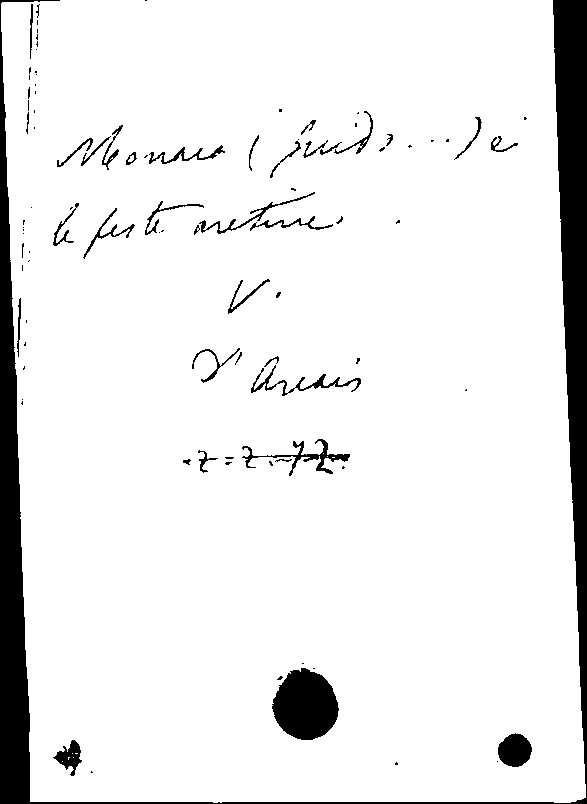 Monaco (Guido...) e
le feste aretine.
V.
D'Arcais